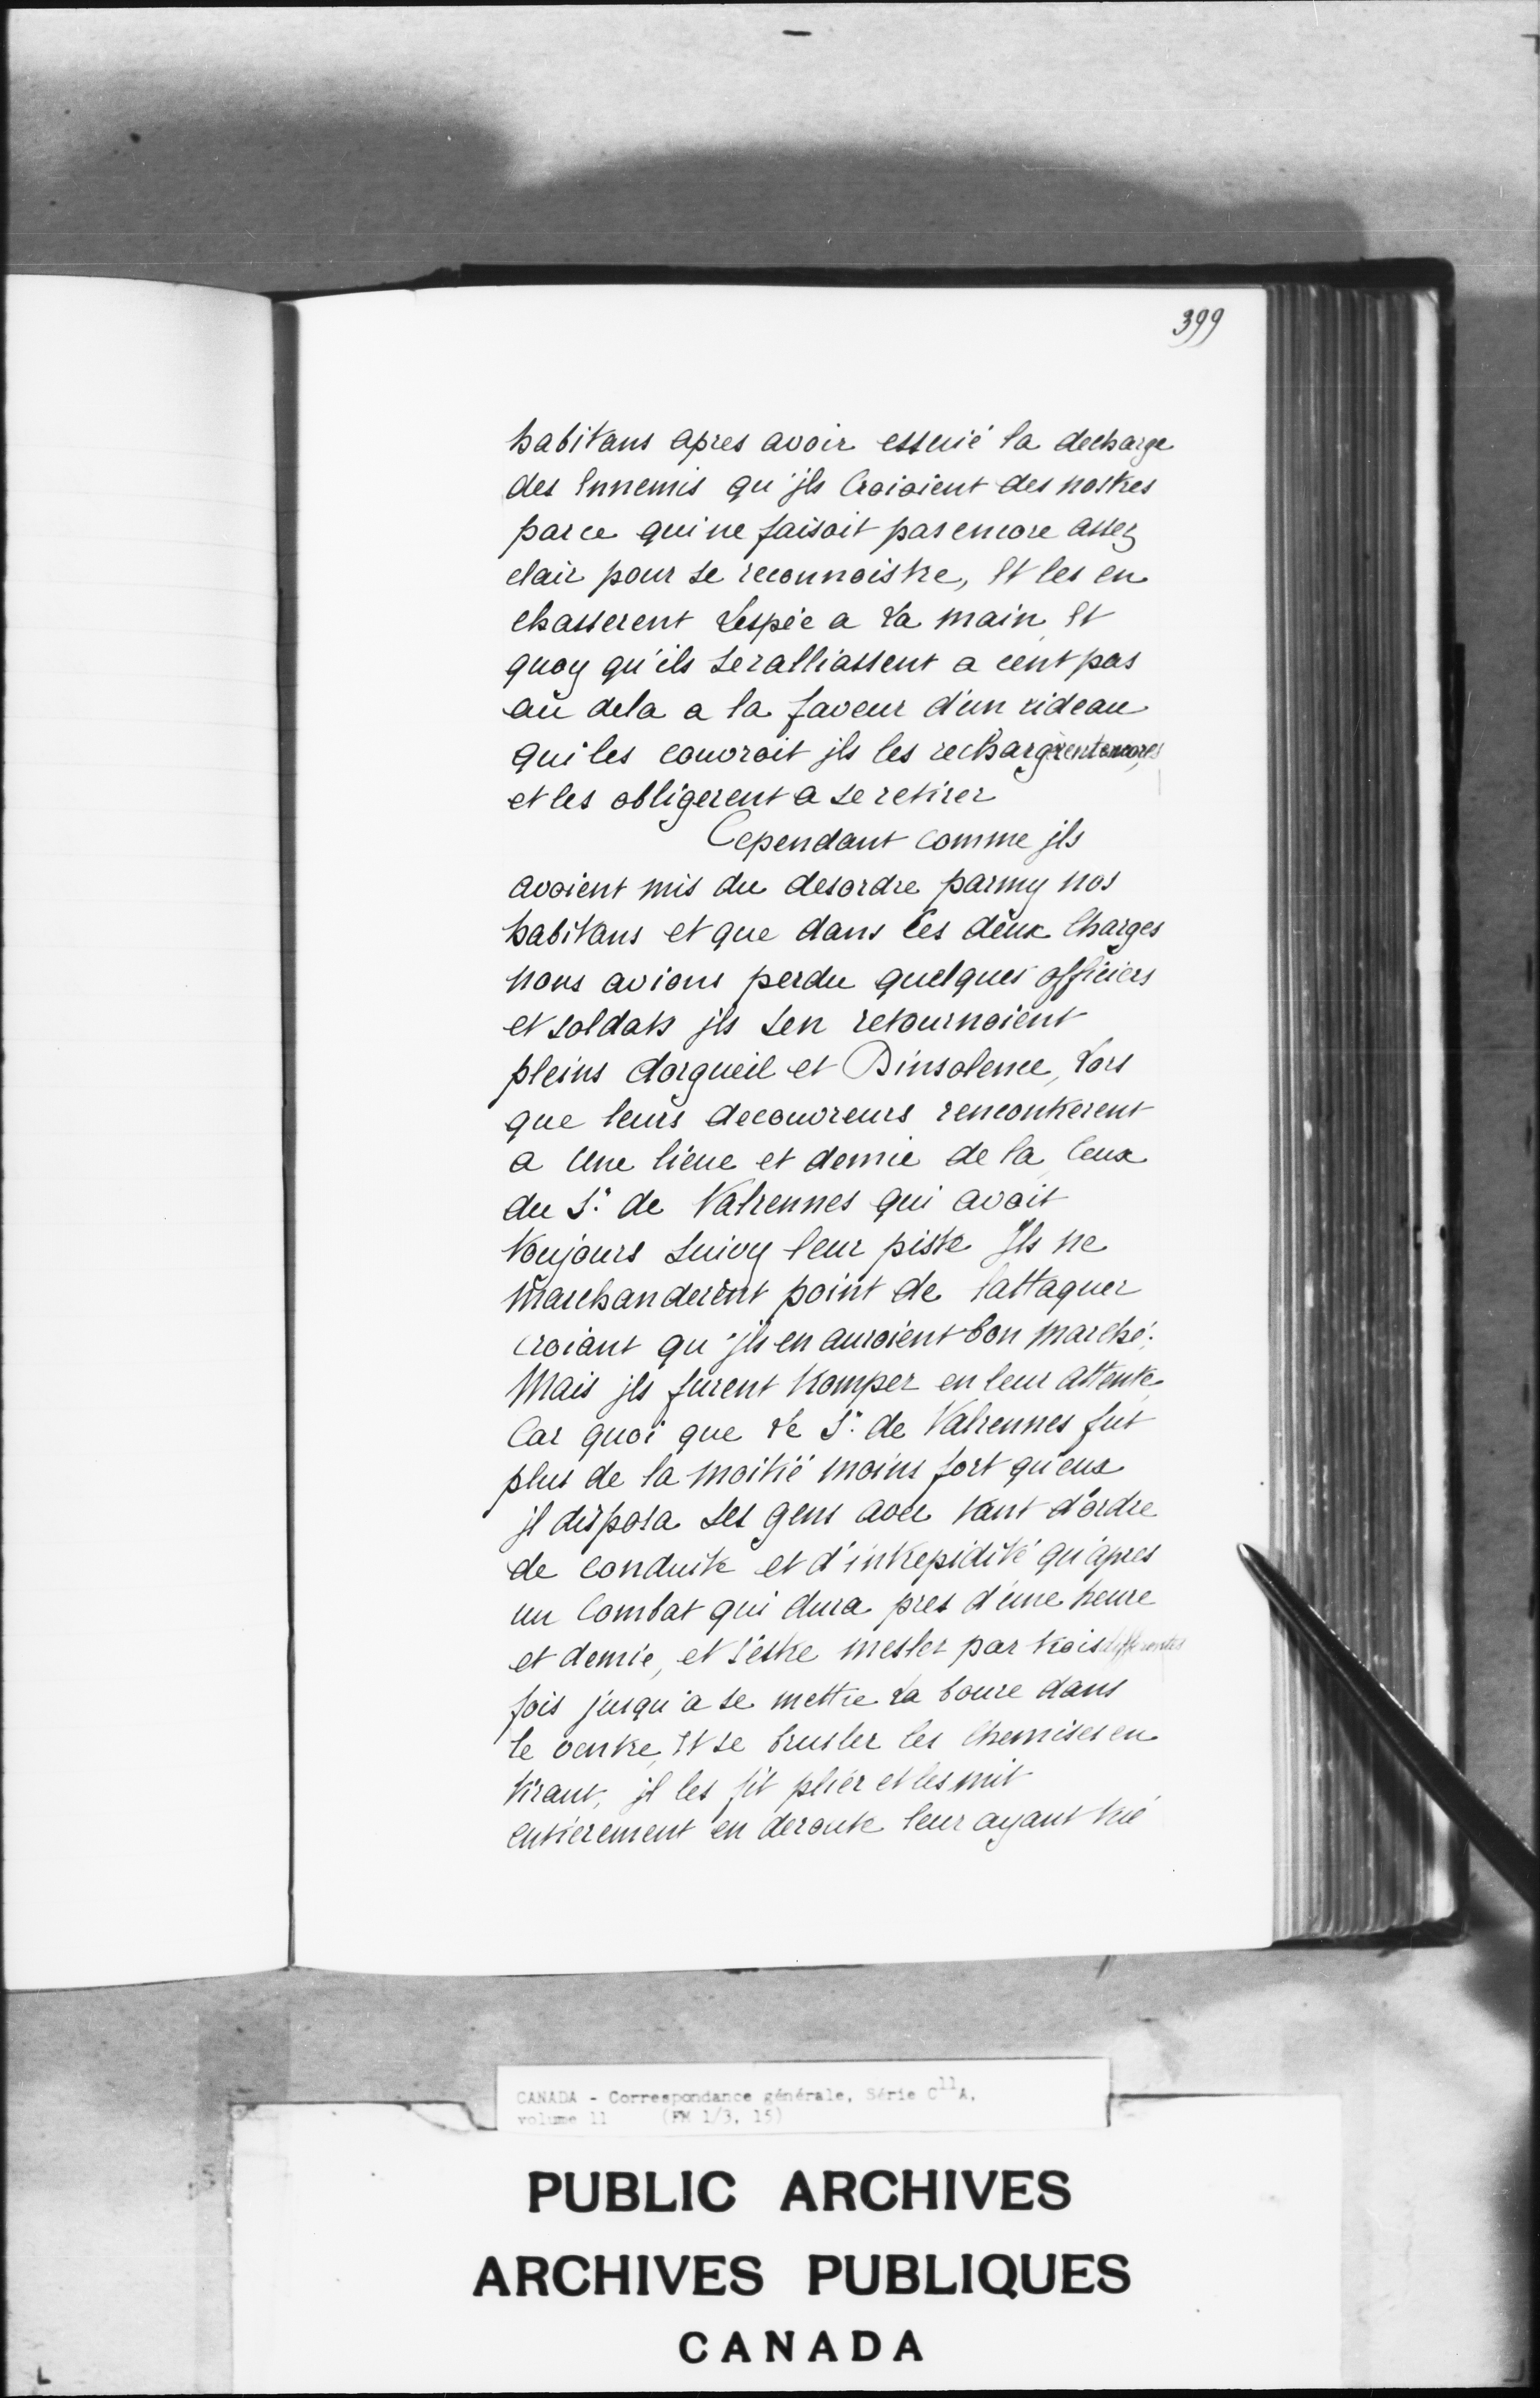 399
habitans apres avoir essuié la decharge
des Ennemis qu'jls Croioient des nostres
parce qui ne faisoit pas encore assez
clair pour se reconnoistre, Et les en
chasserent Lespée a La main, Et
quoy qu'ils se ralliassent a cent pas
au dela a la faveur d'un rideau
qui les couvroit jls les rechargèrent encores,
et les obligerent a se retirer
Cependant comme jls
avoient mis du desordre parmy nos
habitans et que dans Ces deux Charges
nous avions perdu quelques officiers
et soldats jls sen retournoient
pleins dorgueil et Dinsolence, Lors
que leurs decouvreurs rencontrerent
a Une lieue et demie de la Ceux
du Sr. de Valrennes qui avoit
toujours suivy leur piste Jls ne
marchanderent point de lattaquer
croiant qu'jls en auroient bon marché.
Mais jls furent tromper en leur attente
Car quoi que Le Sr. de Valrennes fut
plus de la moitié moins fort qu'eux
jl disposa ses gens avec tant d'ordre
de conduite et d'intrepidité qu'apres
un Combat qui dura pres d'une heure
et demie, et s'estre mesler par trois differentes
fois jusqu'a se mettre La boure dans
le ventre, Et se brusler les Chemises en
tirant, jl les fit plier et les mit
entierement en deroute leur ayant tué
CANADA - Correspondance générale, Série C11A,
volume 11 (FM 1/3, 15)
PUBLIC ARCHIVES
ARCHIVES PUBLIQUES
CANADA